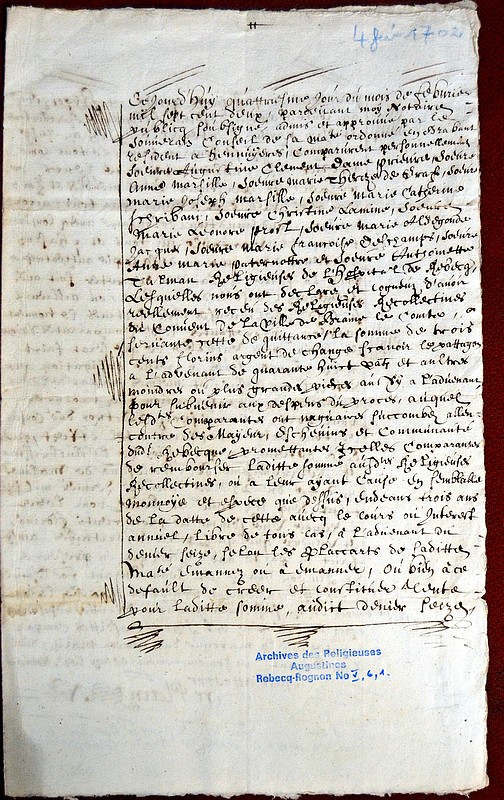 4 feb 1702
Ce Jourd'huy quattriesme Jour du mois de Feburier
mil sept cent deux, pardevant moy Notaire
publicq soubsigné, admis et approuvé par le
Souverain Conseil de sa Ma.te ordonné en Brabant
resident a Hennuyeres, Comparurent personnellement
Soeure Augustine Clement Dame prieure, Soeure
Anne Marsille, Soeure Marie Therese de Graf, Soeure
Marie Joseph Marsille, Soeure Marie Catherine
Scribani, Soeure Christine Lamine, Soeure
Marie Leonore Prost, Soeure Marie Aldegonde
Jacquez, Soeure Marie francoise Deschamps, Soeure
Anne Marie paternottre et Soeure Antoinette
Talman Religieuses de l'Hospital de Rebecq,
Lesquelles nous ont declaré et cogneu d'avoir
reellement receu des Religieuses Recollectines
du Convent de la Ville de Braine le Conte,
servante cette de quittance, la somme de trois
cents florins argent de change scavoir le pattagon
a l'advenant de quarante huict patt et aultres
moindres ou plus grandes pieces au a l'advenant
pour subvenir aux despens du proces, auquel
lesd.tes Comparantes ont naguaire succombé allen-
contre des Mayeur, Eschevins et Communauté
dud.t Rebecque, promettantes Icelles Comparantes
de rembourser laditte somme ausd.tes Religieuses
Recollectines, ou a leur ayant Cause en semblable
monnoye et espece que dessus, endeans trois ans
de la datte de cette avecq le cours ou Interest
annuel, libre de tous cas, a l'advenant du
denier seize, selon les Placcarts de saditte
Ma.te emannez ou a emanner, Ou bien a ce
default de créer et constituer Rente
pour laditte somme, audict denier seize,
Archives des Religieuses
Augustines
Rebecq-Rognon No V, 6, 1.